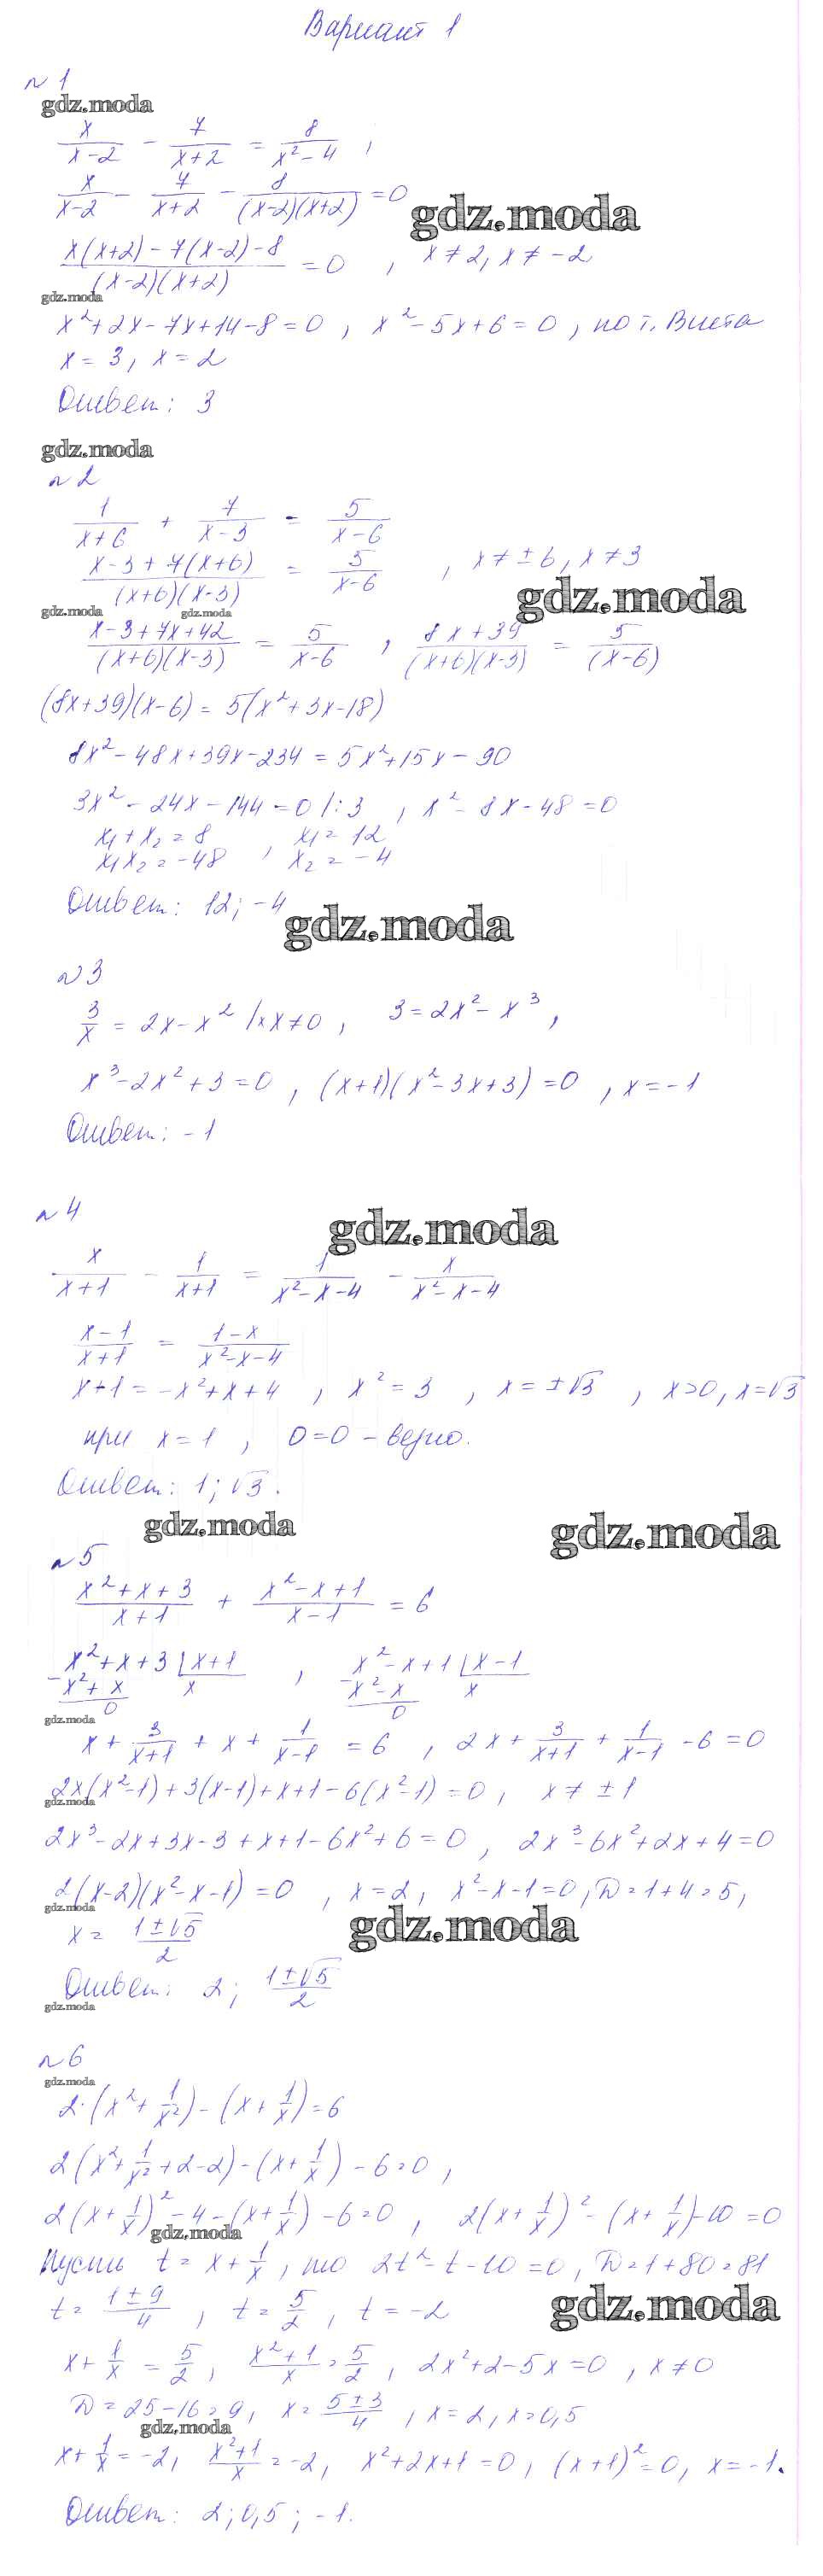 Вариант 1
№1
gdz.moda
x/(x-2) - 7/(x+2) = 8/(x²-4) ,
x/(x-2) - 7/(x+2) - 8/((x-2)(x+2)) = 0
gdz.moda
(x(x+2)-7(x-2)-8)/((x-2)(x+2)) = 0 , x≠2, x≠-2
gdz.moda
x²+2x-7x+14-8=0 , x²-5x+6=0 , по т. Виета
x=3, x=2
Ответ: 3
gdz.moda
№2
1/(x+6) + 7/(x-3) = 5/(x-6)
(x-3+7(x+6))/((x+6)(x-3)) = 5/(x-6) , x≠±6, x≠3
gdz.moda
gdz.moda gdz.moda
(x-3+7x+42)/((x+6)(x-3)) = 5/(x-6) , (8x+39)/((x+6)(x-3)) = 5/(x-6)
(8x+39)(x-6)=5(x²+3x-18)
8x²-48x+39x-234=5x²+15x-90
3x²-24x-144=0 /:3 , x²-8x-48=0
x₁+x₂=8 , x₁=12
x₁x₂=-48 x₂=-4
Ответ: 12; -4
gdz.moda
№3
3/x = 2x-x² /·x x≠0 , 3=2x²-x³ ,
x³-2x²+3=0 , (x+1)(x²-3x+3)=0 , x=-1
Ответ: -1
№4
gdz.moda
x/(x+1) - 1/(x+1) = 1/(x²-x-4) - x/(x²-x-4)
(x-1)/(x+1) = (1-x)/(x²-x-4)
x+1=-x²+x+4 , x²=3 , x=±√3 , x>0, x=√3
при x=1 , 0=0 - верно.
Ответ: 1; √3.
gdz.moda gdz.moda
№5
(x²+x+3)/(x+1) + (x²-x+1)/(x-1) = 6
x²+x+3 | x+1 , x²-x+1 | x-1
- x²+x x - x²-x x
0 0
gdz.moda
x + 3/(x+1) + x + 1/(x-1) = 6 , 2x + 3/(x+1) + 1/(x-1) - 6 = 0
2x(x²-1)+3(x-1)+x+1-6(x²-1)=0 , x≠±1
gdz.moda
2x³-2x+3x-3+x+1-6x²+6=0 , 2x³-6x²+2x+4=0
2(x-2)(x²-x-1)=0 , x=2, x²-x-1=0, D=1+4=5,
gdz.moda
x = (1±√5)/2
gdz.moda
Ответ: 2; (1±√5)/2
gdz.moda
№6
gdz.moda
2·(x²+1/x²)-(x+1/x)=6
2(x²+1/x²+2-2)-(x+1/x)-6=0 ,
2(x+1/x)²-4-(x+1/x)-6=0 , 2(x+1/x)²-(x+1/x)-10=0
gdz.moda
Пусть t=x+1/x , то 2t²-t-10=0, D=1+80=81
t=(1±9)/4 , t=5/2 , t=-2
gdz.moda
x+1/x=5/2 , (x²+1)/x=5/2 , 2x²+2-5x=0 , x≠0
D=25-16=9, x=(5±3)/4 , x=2, x=0,5
gdz.moda
x+1/x=-2, (x²+1)/x=-2, x²+2x+1=0, (x+1)²=0, x=-1.
Ответ: 2; 0,5; -1.